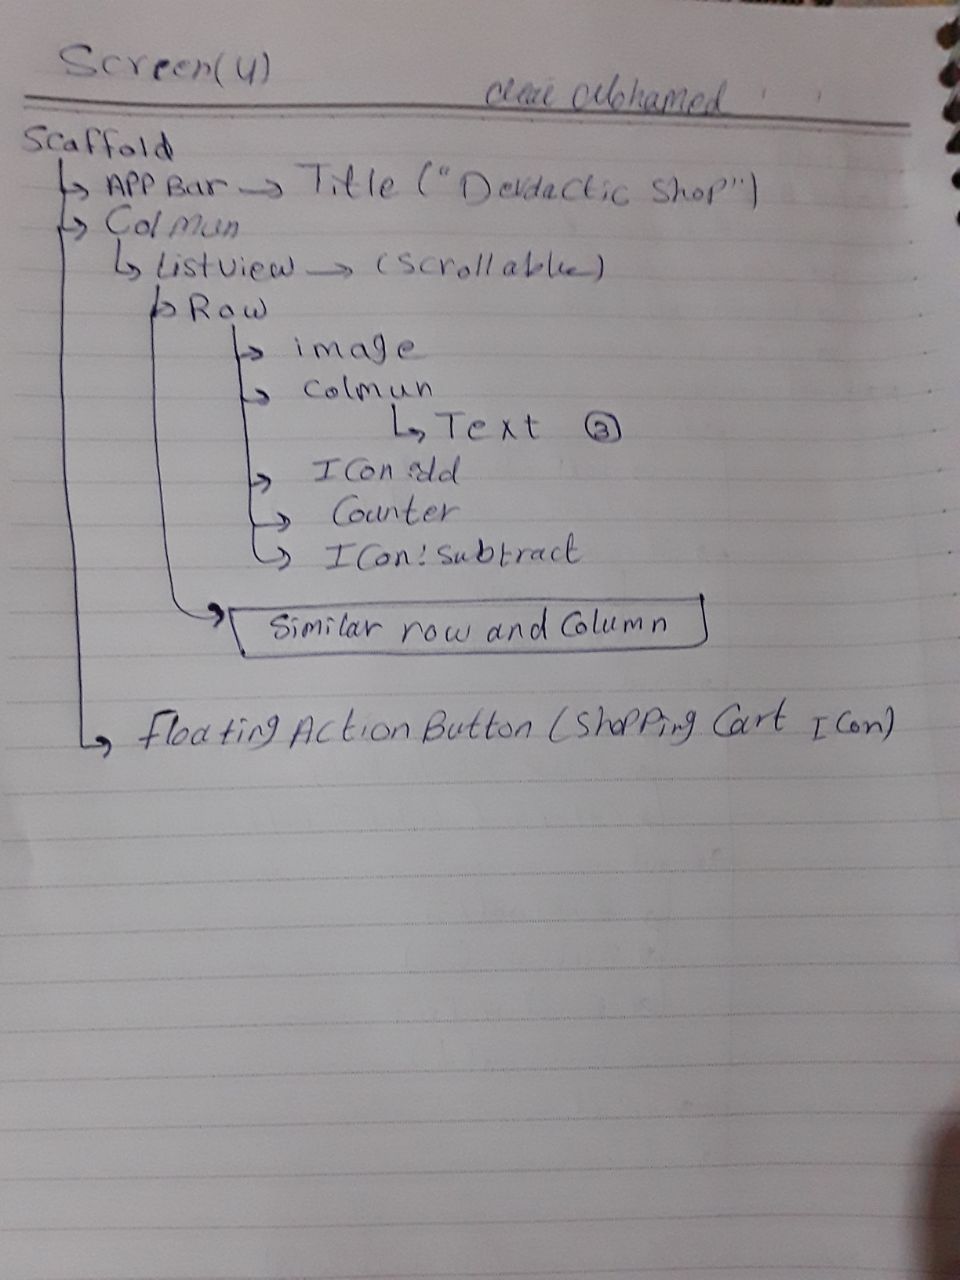 Screen(4)
Mohamed
Scaffold
APP Bar → Title ("Devdactic Shop")
Colmun
Listview → (Scrollable)
Row
image
Colmun
Text ③
ICon add
Counter
ICon: Subtract
Similar row and Column
Floating Action Button (Shopping Cart ICon)